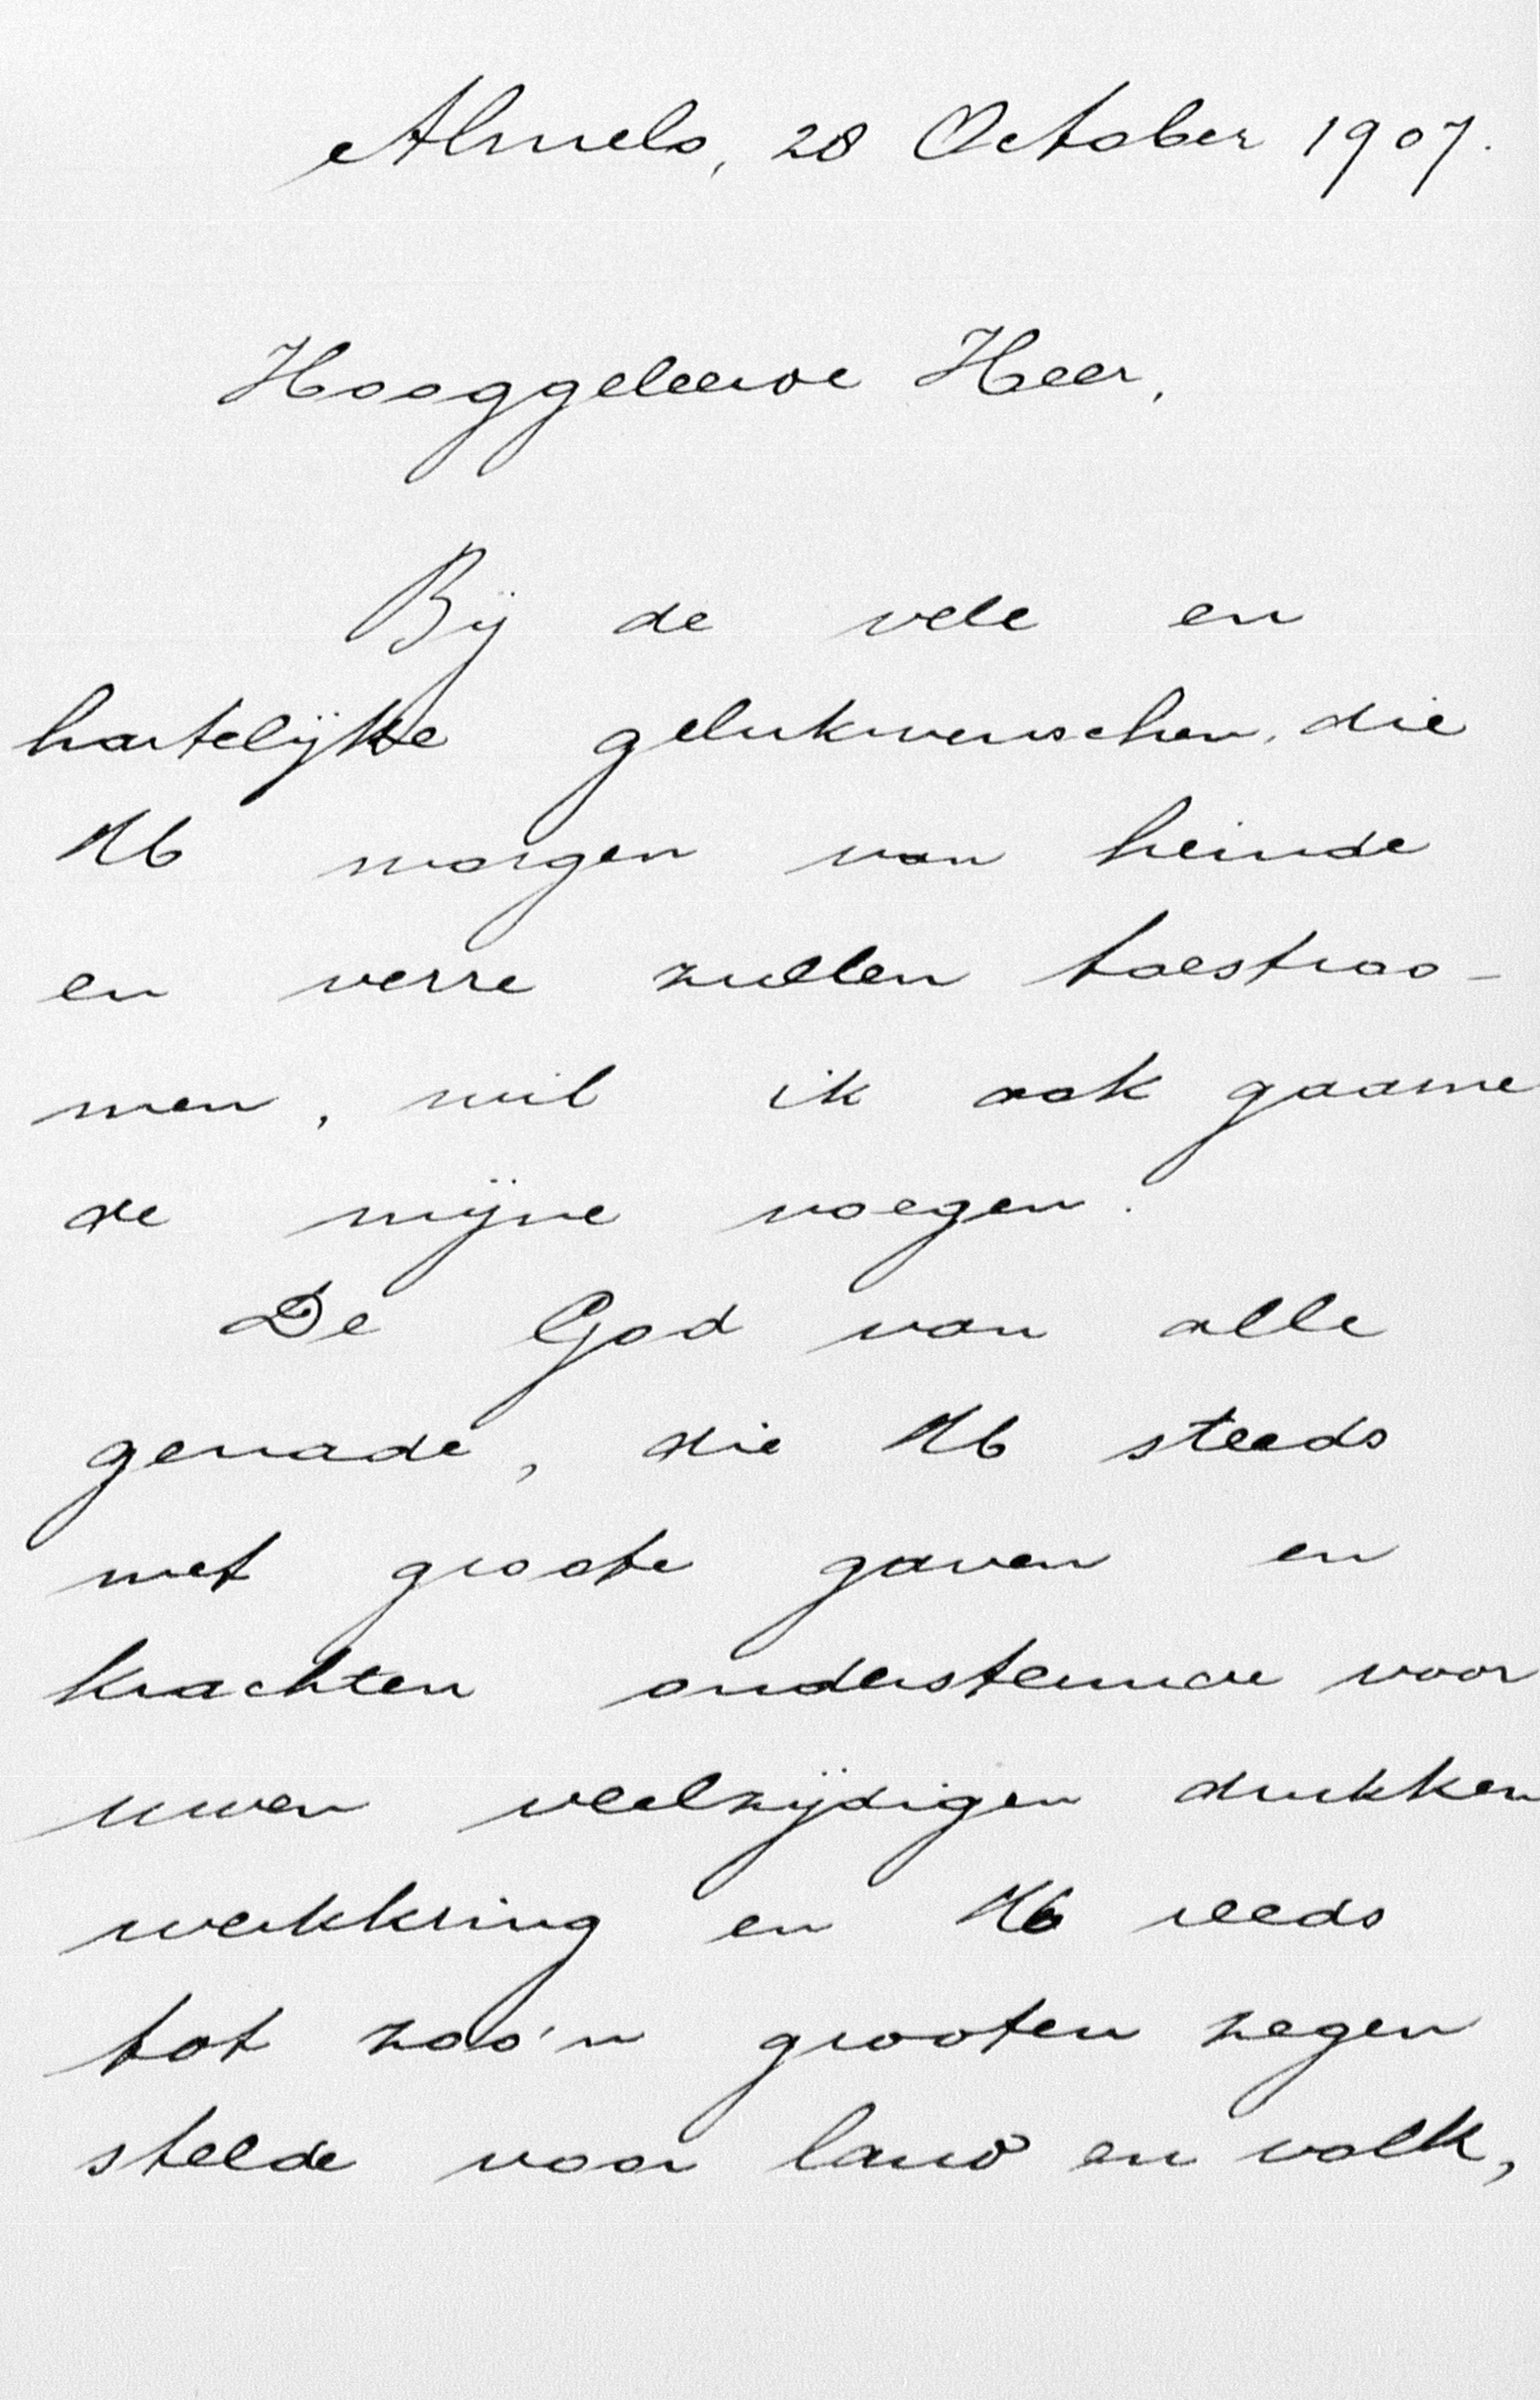 Almelo, 28 October 1907.
Hooggeleerde Heer,
Bij de vele en
hartelijke gelukwenschen, die
U morgen van heinde
en verre zullen toestroo-
men, wil ik ook gaarne
de mijne voegen.
De God van alle
genade, die U steeds
met groote gaven en
krachten ondersteunde voor
uwen veelzijdigen drukken
werkkring en U reeds
tot zoo'n grooten zegen
stelde voor land en volk,